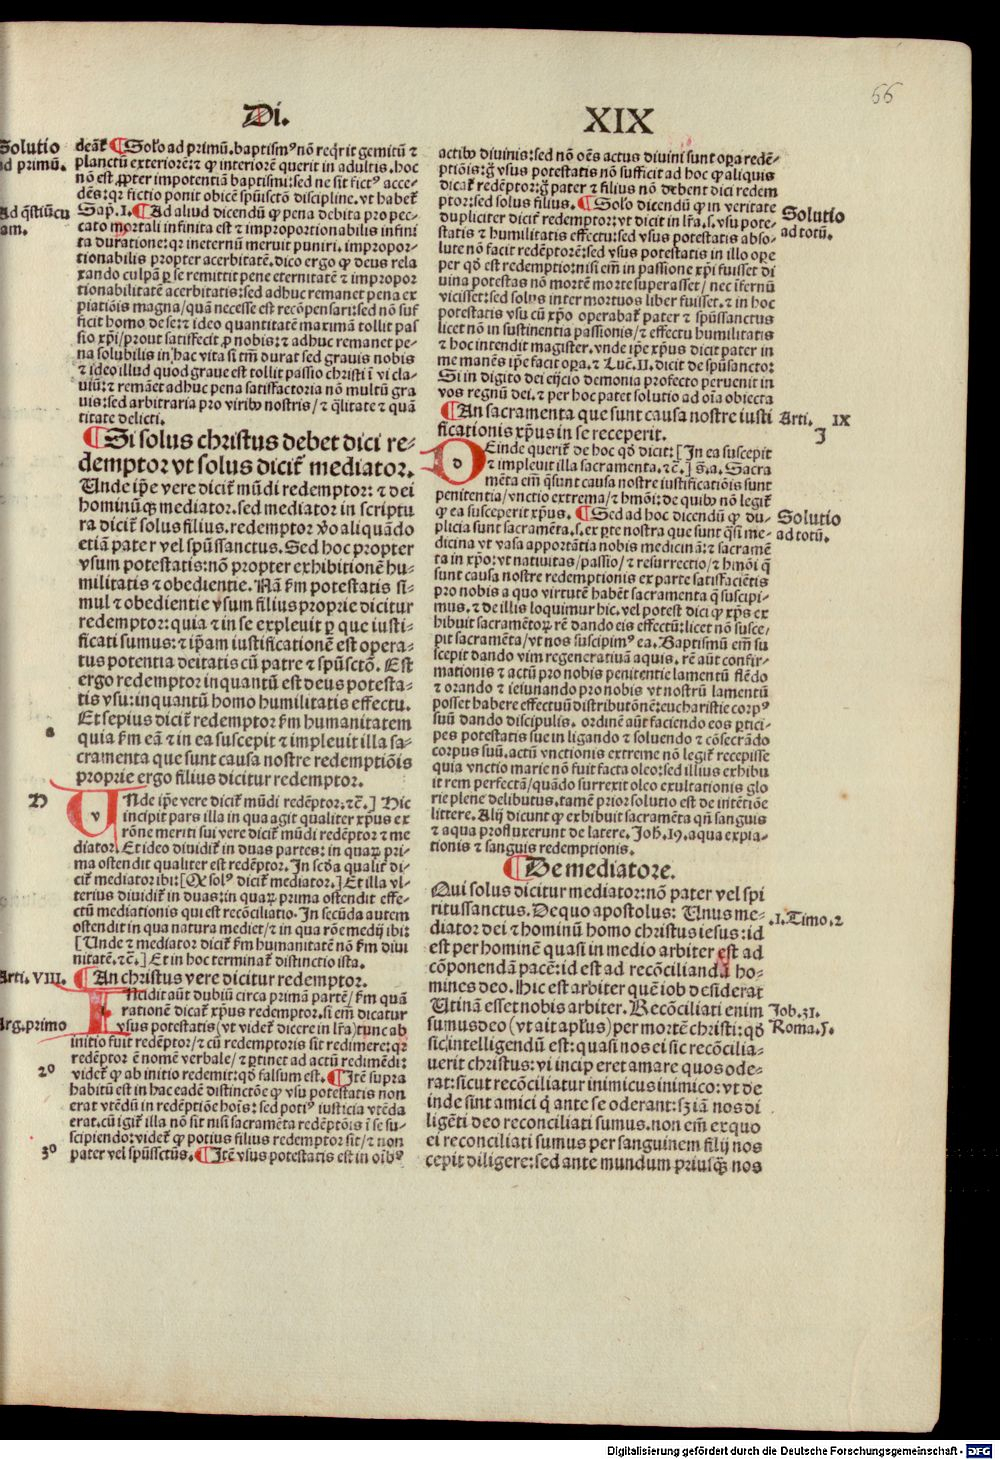 66
Di. XIX
Solutio
ad primū.
deāt̄ ¶ Solo ad primū. baptismꝰ nō reqͥrit gemitū ⁊
planctū exteriorē: ⁊ ꝙ interiorē querit in adultis. hoc
nō est ꝓpter impotentiā baptismi: sed ne sit fictꝰ acce-
dēs: qꝛ fictio ponit obicē spūisctō discipline. vt habet᷑
Ad q̄stiūcu
am.
Sap. I. ¶ Ad aliud dicendū ꝙ pena debita pro pec-
cato mortali infinita est ⁊ improportionabilis infini
ta duratione: qꝛ in eternū meruit puniri. impropor-
tionabilis propter acerbitatē. dico ergo ꝙ deus rela
xando culpā ꝑ se remittit pene eternitatē ⁊ impropor
tionabilitatē acerbitatis: sed adhuc remanet pena ex
piatiōis magna/ quā necesse est recōpensari: sed nō suf
ficit homo de se: ⁊ ideo quantitatē maximā tollit pas
sio xp̄i/ prout satisfecit ꝓ nobis: ⁊ adhuc remanet pe-
na solubilis in hac vita si tm̄ durat sed grauis nobis
⁊ ideo illud quod graue est tollit passio christi ī vi cla-
uiū: ⁊ remāet adhuc pena satisfactoria nō multū gra
uis: sed arbitraria pro viribꝰ nostris/ ⁊ q̄litate ⁊ quā
titate delicti.
¶ Si solus christus debet dici re-
demptor vt solus dicit᷑ mediator.
Unde ip̄e vere dicit᷑ mūdi redemptor: ⁊ dei
hominūqꝫ mediator. sed mediator in scriptu
ra dicit᷑ solus filius. redemptor v̓o aliquādo
etiā pater vel spūssanctus. Sed hoc propter
vsum potestatis: nō propter exhibitionē hu-
militatis ⁊ obedientie. Nā ẜm potestatis si-
mul ⁊ obedientie vsum filius proprie dicitur
redemptor: quia ⁊ in se expleuit ꝑ que iusti-
ficati sumus: ⁊ ip̄am iustificationē est opera-
tus potentia deitatis cū patre ⁊ spūsctō. Est
ergo redemptor inquantū est deus potesta-
tis vsu: inquantū homo humilitatis effectu.
Et sepius dicit᷑ redemptor ẜm humanitatem
a
quia ẜm eā ⁊ in ea suscepit ⁊ impleuit illa sa-
cramenta que sunt causa nostre redemptiōis
proprie ergo filius dicitur redemptor.
D
VNde ip̄e vere dicit᷑ mūdi redēptor. ⁊c̄.] Hic
incipit pars illa in qua agit qualiter xp̄us ex
rōne meriti sui vere dicit᷑ mūdi redēptor ⁊ me
diator. Et ideo diuidit᷑ in duas partes: in quaꝝ pri-
ma ostendit qualiter est redēptor. In scd̄a qualit̓ di-
cit᷑ mediator ibi: [Qͥ solꝰ dicit᷑ mediator.] Et illa vl-
terius diuidit᷑ in duas: in quaꝝ prima ostendit effe-
ctū mediationis qui est recōciliatio. In secūda autem
ostendit in qua natura mediet/ ⁊ in qua rōe medij ibi:
[Unde ⁊ mediator dicit᷑ ẜm humanitatē nō ẜm diui
nitatē. ⁊c̄.] Et in hoc terminat᷑ distinctio ista.
Arti. VIII.
¶ An christus vere dicitur redemptor.
INcidit aūt dubiū circa primā partē/ ẜm quā
rationē dicat᷑ xp̄us redemptor. si em̄ dicatur
Arg. primo
vsus potestatis (vt videt᷑ dicere in lr̄a) tunc ab
initio fuit redēptor/ ⁊ cū redemptoris sit redimere: qꝛ
redēptor ē nomē verbale/ ⁊ ꝑtinet ad actū redimēdi:
2º
videt᷑ ꝙ ab initio redemit: qd̓ falsum est. ¶ Itē supra
habitū est in hac eadē distinctōe ꝙ vsu potestatis non
erat vtēdū in redēptiōe hoīs: sed potiꝰ iusticia vtēda
erat. cū igit᷑ illa nō sit nisi sacramēta redēptōis ī se su-
scipiendo: videt᷑ ꝙ potius filius redemptor sit/ ⁊ non
3º
pater vel spūssctūs. ¶ Itē vsus potestatis est in oībꝰ
actibꝰ diuinis: sed nō oēs actus diuini sunt oꝑa redē-
ptiōis: g̊ vsus potestatis nō sufficit ad hoc ꝙ aliquis
dicat᷑ redēptor: g̊ pater ⁊ filius nō debent dici redem
ptor: sed solus filius. ¶ Solo dicendū ꝙ in veritate
Solutio
ad totū.
dupliciter dicit᷑ redemptor: vt dicit in lr̄a. s. vsu pote-
statis ⁊ humilitatis effectu: sed vsus potestatis abso-
lute nō facit redēptorē: sed vsus potestatis in illo oꝑe
per qd̓ est redemptio: nisi em̄ in passione xp̄i fuisset di
uina potestas nō mortē morte superasset/ nec īfernū
vicisset: sed solus inter mortuos liber fuisset. ⁊ in hoc
potestatis vsu cū xp̄o operabat᷑ pater ⁊ spūssanctus
licet nō in sustinentia passionis/ ⁊ effectu humilitatis
⁊ hoc intendit magister. vnde ip̄e xp̄us dicit pater in
me manēs ip̄e facit oꝑa. ⁊ Luē. II. dicit de spūsancto:
Si in digito dei eijcio demonia profecto peruenit in
vos regnū dei. ⁊ per hoc patet solutio ad oīa obiecta
¶ An sacramenta que sunt causa nostre iusti
Arti. IX
J
ficationis xp̄us in se receperit.
DEinde querit᷑ de hoc qd̓ dicit: [In ea suscepit
⁊ impleuit illa sacramenta. ⁊c̄.] s̄. a. Sacra
mēta em̄ q̄ sunt causa nostre iustificatiōis sunt
penitentia/ vnctio extrema/ ⁊ hmōi: de quibꝰ nō legit᷑
ꝙ ea susceperit xp̄us. ¶ Sed ad hoc dicendū ꝙ du-
Solutio
ad totū.
plicia sunt sacramēta. s. ex ꝑte nostra que sunt q̄si me-
dicina vt vasa apportātia nobis medicinā: ⁊ sacramē
ta in xp̄o: vt natiuitas/ passio/ ⁊ resurrectio/ ⁊ hmōi q̄
sunt causa nostre redemptionis ex parte satisfaciētis
pro nobis a quo virtutē habēt sacramenta q̄ suscipi-
mus. ⁊ de illis loquimur hic. vel potest dici ꝙ xp̄s ex
hibuit sacramētoꝝ rē dando eis effectū: licet nō susce-
pit sacramēta/ vt nos suscipimꝰ ea. Baptismū em̄ su
scepit dando vim regeneratiuā aquis. rē aūt confir-
mationis ⁊ actū pro nobis penitentie lamentū flēdo
⁊ orando ⁊ ieiunando pro nobis vt nostrū lamentū
posset habere effectuū distributōnē: eucharistie corpꝰ
suū dando discipulis. ordinē aūt faciendo eos ꝑtici-
pes potestatis sue in ligando ⁊ soluendo ⁊ cōsecrādo
corpus suū. actū vnctionis extreme nō legit᷑ recepisse
quia vnctio marie nō fuit facta oleo: sed illius exhibu
it rem perfectā/ quādo surrexit oleo exultationis glo
rie plene delibutus. tamē prior solutio est de intētiōe
littere. Alij dicunt ꝙ exhibuit sacramēta qn̄ sanguis
⁊ aqua profluxerunt de latere. Joh. 19. aqua expia-
tionis ⁊ sanguis redemptionis.
¶ De mediatore.
Qui solus dicitur mediator: nō pater vel spi
ritussanctus. De quo apostolus: Unus me-
.I. Timo. 2
diator dei ⁊ hominū homo christus iesus: id
est per hominē quasi in medio arbiter est ad
cōponendā pacē: id est ad recōciliandā ho-
mines deo. Hic est arbiter quē iob desiderat
Utinā esset nobis arbiter. Recōciliati enim
Job. 31.
sumus deo (vt ait apl̄us) per mortē christi: qd̓
Roma. 5.
sic intelligendū est: quasi nos ei sic recōcilia-
uerit christus: vt inciperet amare quos ode-
rat: sicut recōciliatur inimicus inimico: vt de
inde sint amici q̄ ante se oderant: sꝫ iā nos di
ligēti deo reconciliati sumus. non em̄ ex quo
ei reconciliati sumus per sanguinem filij nos
cepit diligere: sed ante mundum priusq̄ꝫ nos
Digitalisierung gefördert durch die Deutsche Forschungsgemeinschaft - DFG